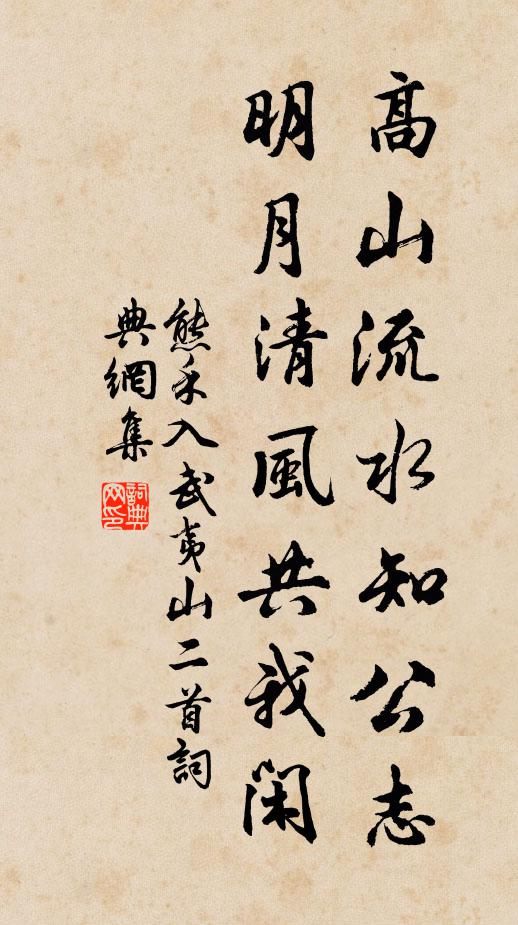 高山流水知公志
明月清風共我閑
熊禾入武夷山二首詞
典網集
詞典網印